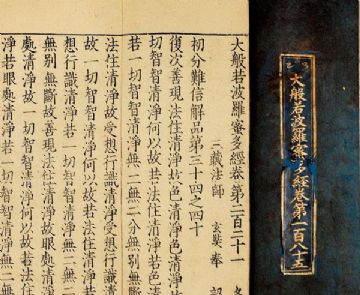 大般若波羅蜜多經卷第一百八十五
大般若波羅蜜多經卷第二百二十一
三藏法師 玄奘奉 詔
初分難信解品第三十四之四十
復次善現法住清淨故色清淨色清淨
切智智清淨何以故若法住清淨若色清
若一切智智清淨無二無二分無別無斷
法住清淨故受想行識清淨受想行識清
故一切智智清淨何以故若法住清淨若
想行識清淨若一切智智清淨無二無二
無別無斷故善現法住清淨故眼處清淨
處清淨故一切智智清淨何以故若法住
淨若眼處清淨若一切智智清淨無二無